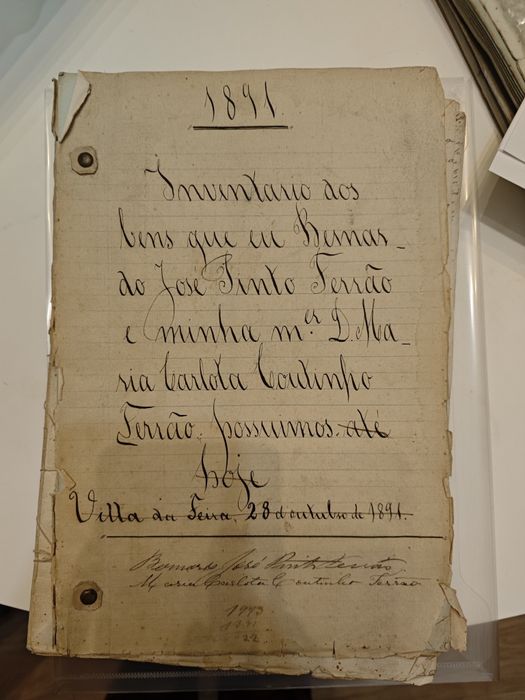 1891.
Inventario dos
bens que eu Bernar-
do José Pinto Ferrão
e minha m.er D. Ma-
ria Carlota Coutinho
Ferrão, possuimos até
hoje
Villa da Feira, 28 d'outubro de 1891.
Bernardo José Pinto Ferrão
Maria Carlota Coutinho Ferrão